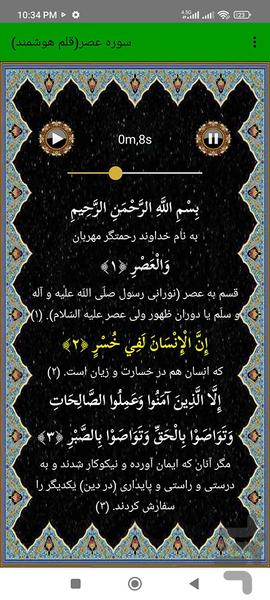 10:34 PM
4.5G
123
سوره عصر(قلم هوشمند)
0m,8s
بِسْمِ اللَّهِ الرَّحْمَنِ الرَّحِيمِ
به نام خداوند رحمتگر مهربان
وَالْعَصْرِ ﴿۱﴾
قسم به عصر (نورانی رسول صلّی الله علیه و آله
و سلّم یا دوران ظهور ولی عصر علیه السّلام). (۱)
إِنَّ الْإِنْسَانَ لَفِي خُسْرٍ ﴿۲﴾
که انسان هم در خسارت و زیان است. (۲)
إِلَّا الَّذِينَ آمَنُوا وَعَمِلُوا الصَّالِحَاتِ
وَتَوَاصَوْا بِالْحَقِّ وَتَوَاصَوْا بِالصَّبْرِ ﴿۳﴾
مگر آنان که ایمان آورده و نیکوکار شدند و به
درستی و راستی و پایداری (در دین) یکدیگر را
سفارش کردند. (۳)